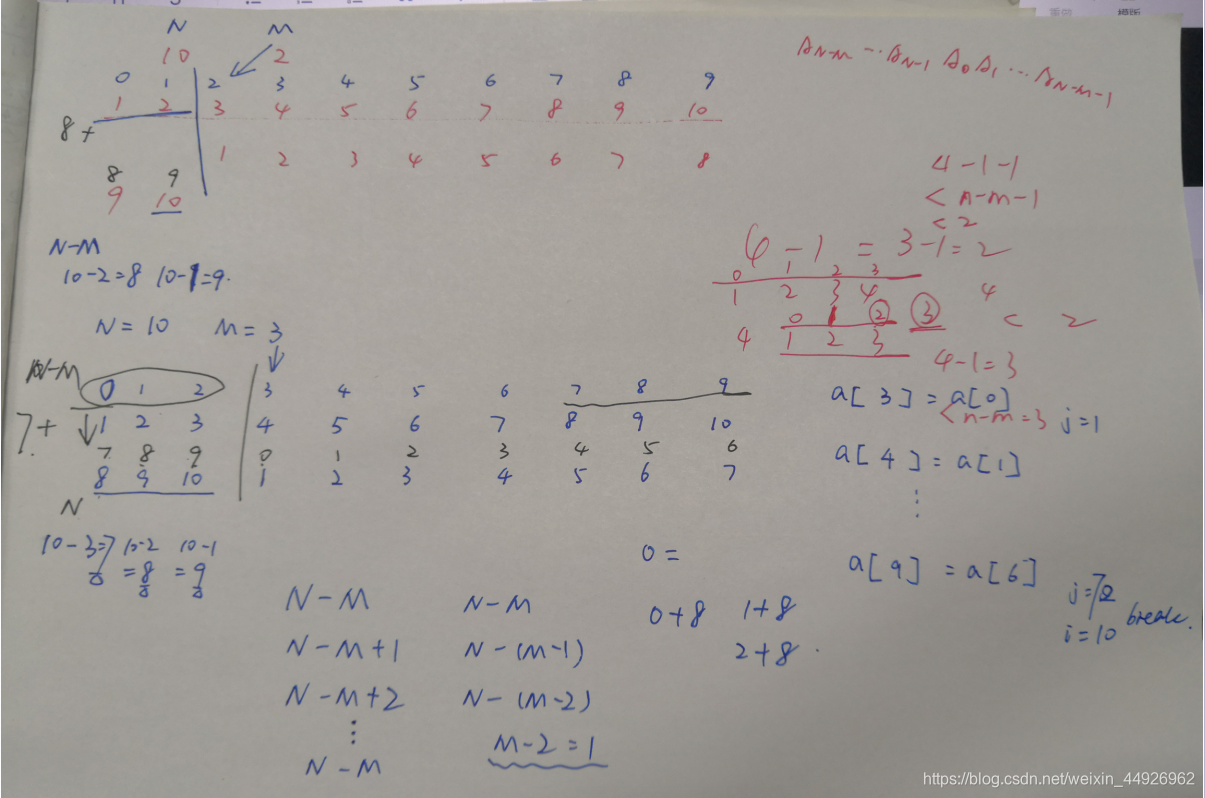 重置 模版
N M
10 2
0 1 2 3 4 5 6 7 8 9
1 2 3 4 5 6 7 8 9 10
8+
1 2 3 4 5 6 7 8
8 9
9 10
A_{N-M} ... A_{N-1} A_0 A_1 ... A_{N-M-1}
4-1-1
< n-m-1
< 2
-1 = 3-1=2
0 1 2 3
1 2 3 4 4
0 1 2 3 < 2
4 1 2 3
4-1=3
N-M
10-2=8 10-1=9.
N=10 M=3
N-M
0 1 2 3 4 5 6 7 8 9
7+ 1 2 3 4 5 6 7 8 9 10
7 8 9 0 1 2 3 4 5 6
8 9 10 1 2 3 4 5 6 7
N
10-3=7 10-2 10-1
=8 =9
a[3]=a[0]
<n-m=3 j=1
a[4]=a[1]
⋮
a[9]=a[6]
j=7
i=10 break.
0=
0+8 1+8
2+8
N-M N-M
N-M+1 N-(M-1)
N-M+2 N-(M-2)
⋮
N-M M-2=1
https://blog.csdn.net/weixin_44926962